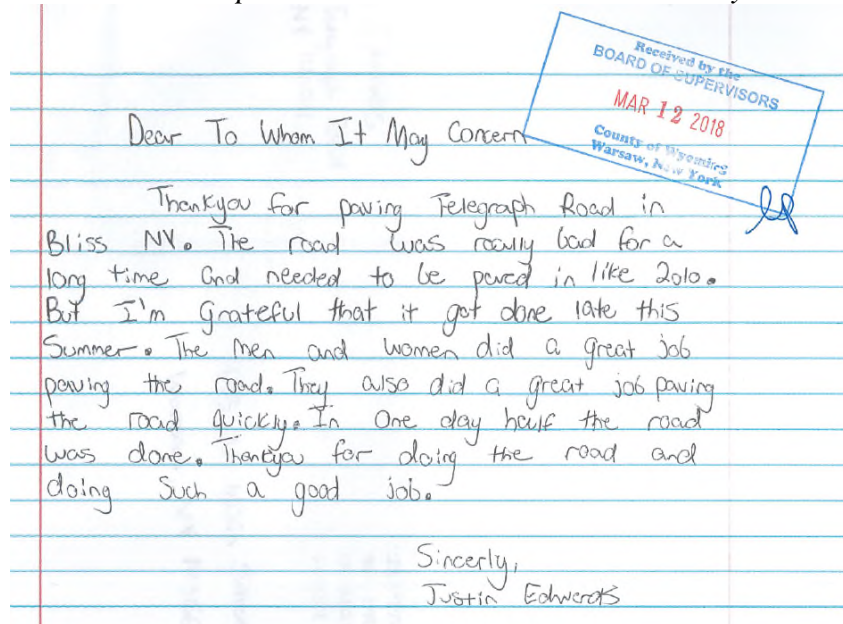 Received by the
BOARD OF SUPERVISORS
MAR 12 2018
County of Wyoming
Warsaw, New York
Dear To Whom It May Concern
Thankyou for paving Telegraph Road in
Bliss NY. The road was really bad for a
long time and needed to be paved in like 2010.
But I'm Grateful that it got done late this
Summer. The men and women did a great job
paving the road. They also did a great job paving
the road quickly. In One day half the road
was done. Thankyou for doing the road and
doing Such a good job.
Sincerly,
Justin Edwards